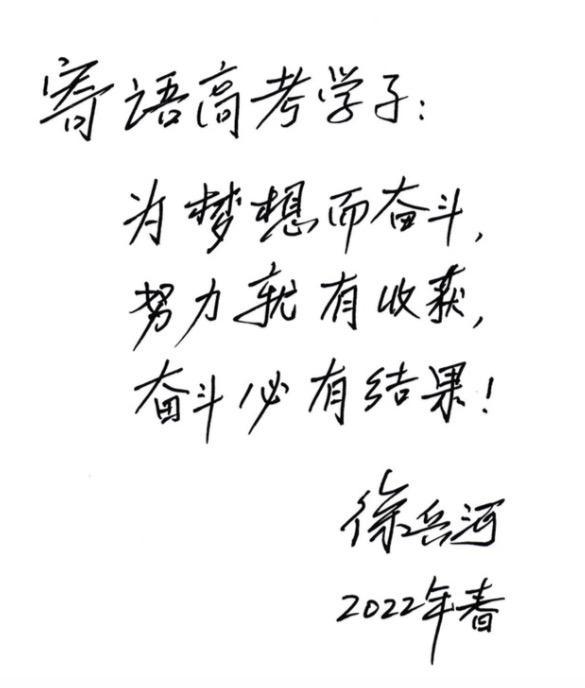 寄语高考学子：
为梦想而奋斗，
努力就有收获，
奋斗必有结果！
徐兵河
2022年春